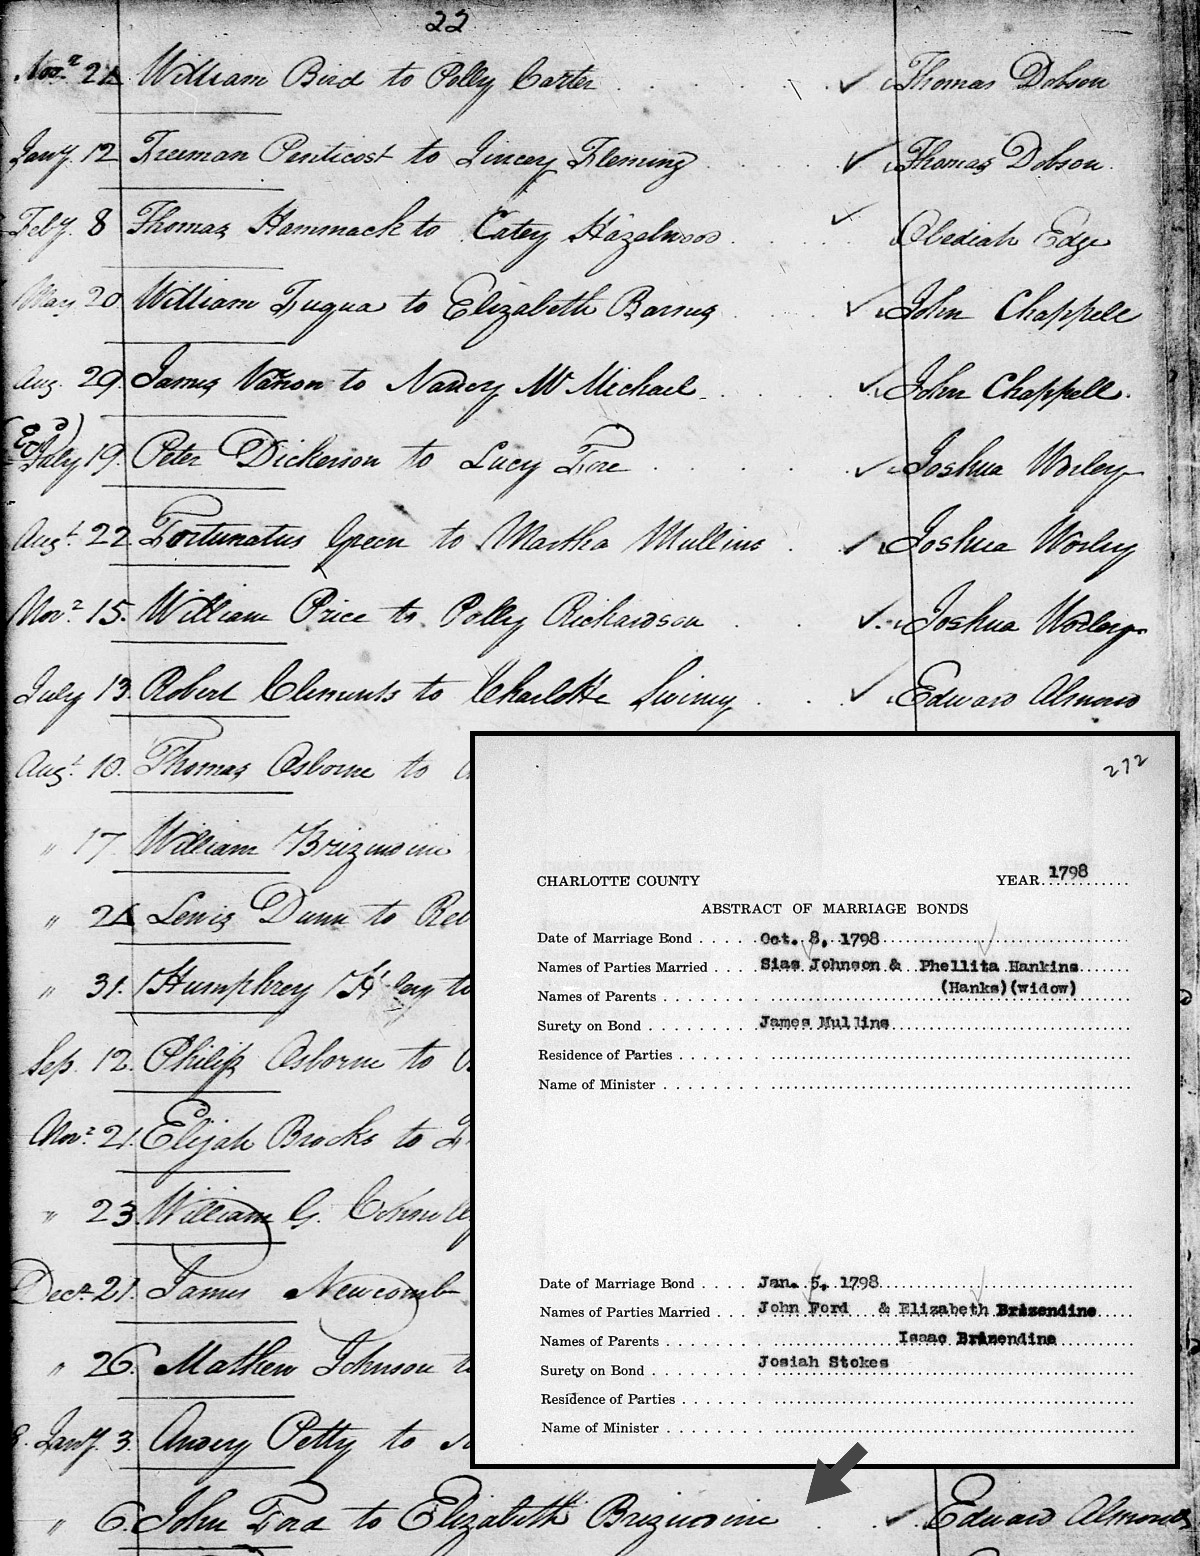 22
Nov.r 22 William Bird to Polly Carter ✓ Thomas Dobson
Jany. 12 Freeman Penticost to Lincey Fleming ✓ Thomas Dobson.
Feby. 8 Thomas Hammack to Catey Hazelwood ✓ Obediah Edge
May 20 William Fuqua to Elizabeth Barnes ✓ John Chappell
Aug. 29. James Vanon to Nancy McMichael ✓ John Chappell.
July 19. Peter Dickerson to Lucy Fore ✓ Joshua Worley
Augt. 22 Fortunatus Green to Martha Mullins ✓ Joshua Worley
Novr. 15. William Price to Polly Richardson ✓ Joshua Worley
July 13. Robert Clements to Charlotte ✓ Edward Almond
Augt. 10. Thomas Osborne to
" 17 William Brizendine
" 24 Lewis Dunn to
" 31. Humphrey to
Sep. 12. Philip Osborne to
Novr. 21. Elijah Brooks to
" 23. William G.
Decr. 21. James Newcomb
" 26. Mathew Johnson
8 Jany. 3. Andery Petty to
" 6. John Ford to Elizabeth Brizendine ✓ Edward Almond
272
CHARLOTTE COUNTY YEAR 1798
ABSTRACT OF MARRIAGE BONDS
Date of Marriage Bond Oct. 8, 1798
Names of Parties Married Sias Johnson & Phellita Hankins
Names of Parents (Hanks)(widow)
Surety on Bond James Mullins
Residence of Parties
Name of Minister
Date of Marriage Bond Jan. 5, 1798
Names of Parties Married John Ford & Elizabeth Brizendine
Names of Parents Isaac Brizendine
Surety on Bond Josiah Stokes
Residence of Parties
Name of Minister